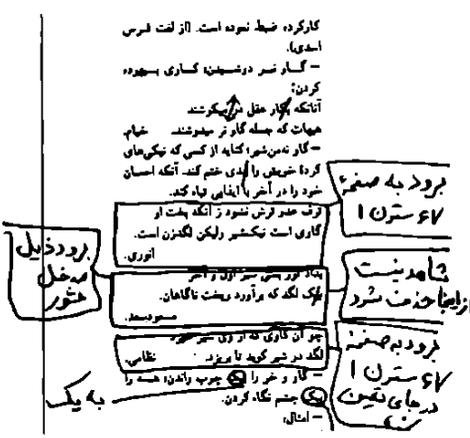 کارکرد، ضبط نموده است. [از لغت فرس
اسدی].
— گاو نر دوشیدن؛ کاری بیهوده
کردن:
آنانکه بکار عقل در میکوشند
هیهات که جمله گاو نر میدوشند. خیام.
— گاو نه‌من‌شیر؛ کنایه از کسی که نیکی‌های
کردهٔ خویش را بدی ختم کند. آنکه احسان
خود را در آخر با ایذایی تباه کند.
عدو ترش نشود ز آنکه بخت او
گاوی است نیک‌شیر ولیکن لگدزن است.
انوری.
شیر اول و آخر
یک لگد که برآورد و بیخت ناگاهان.
مسعودسعد.
چو آن گاوی که از وی شیر
لگد در شیر گوید تا بریزد. نظامی.
— گاو و خر را چوب راندن؛ همه را
چشم نگاه کردن.
— امثال:
برود به صفحهٔ
۷۶ ستون ۱
شاهد نیست
از اینجا حذف شود
برود به صفحهٔ
۷۶ ستون ۱
در جای
برود ذیل
مدخل
به یک